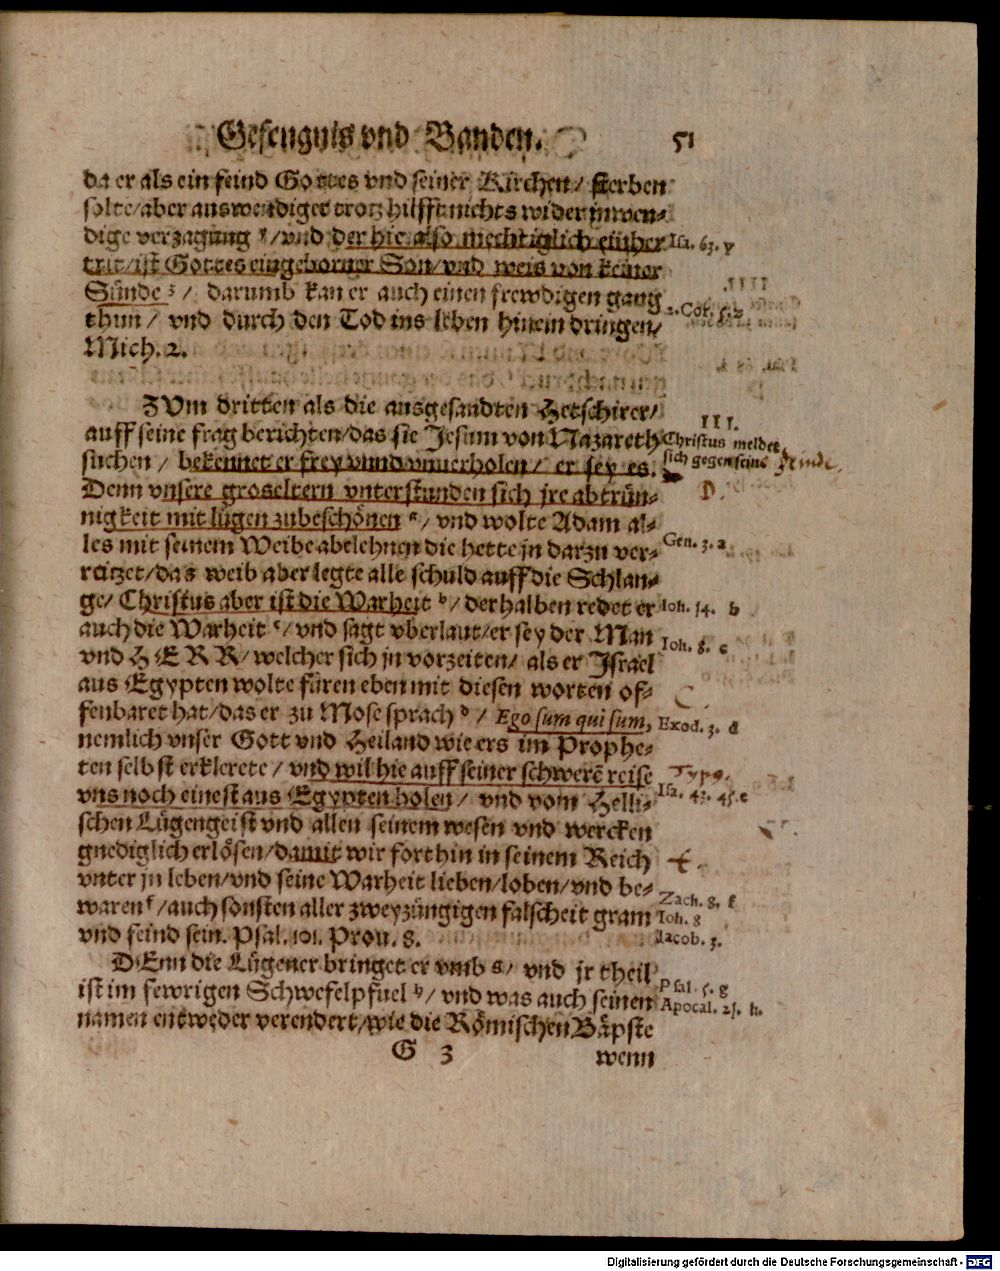 Gefengnis vnd Banden. 51
da er als ein feind Gottes vnd seiner Kirchen / sterben
solte / aber auswendiger trotz hilfft nichts wider inwen-
dige verzagung y / vnd der hie also mechtiglich einher
trit / ist Gottes eingeborner Son / vnd weis von keiner
Sünde z / darumb kan er auch einen frewdigen gang
thun / vnd durch den Tod ins leben hinein dringen /
Mich. 2.
Isa. 63. y
2. Cor. 5. z
ZVm dritten als die ausgesandten Hetschirer /
auff seine frag berichten / das sie Jesum von Nazareth
suchen / bekennet er frey vnnd vnuerholen / er sey es.
Denn vnsere groseltern vnterstunden sich jre abtrün-
nigkeit mit lügen zubeschönen a / vnd wolte Adam al-
les mit seinem Weibe abelehnen die hette jn darzu ver-
reitzet / das weib aber legte alle schuld auff die Schlan-
ge / Christus aber ist die Warheit b / derhalben redet er
auch die Warheit c / vnd sagt vberlaut / er sey der Man
vnd HERR / welcher sich jn vorzeiten / als er Israel
aus Egypten wolte füren eben mit diesen worten of-
fenbaret hat / das er zu Mose sprach d / Ego sum qui sum,
nemlich vnser Gott vnd Heiland wie ers im Prophe-
ten selbst erklerete / vnd wil hie auff seiner schwerē reise
vns noch einest aus Egypten holen / vnd vom Helli-
schen Lügengeist vnd allen seinem wesen vnd wercken
gnediglich erlösen / damit wir forthin in seinem Reich
vnter jn leben / vnd seine Warheit lieben / loben / vnd be-
waren f / auch sonsten aller zweyzüngigen falscheit gram
vnd feind sein. Psal. 101. Prou. 8.
III.
Christus meldet
sich gegen seine Feinde.
Gen. 3. a
Ioh. 14. b
Ioh. 8. c
Exod. 3. d
Typg.
Isa. 43. 45. e
Zach. 8. f
Ioh. 8
Iacob. 3.
DEnn die Lügener bringet er vmb g / vnd jr theil
ist im fewrigen Schwefelpfuel h / vnd was auch seinen
namen entweder verendert / wie die Römischen Bäpste
Psal. 5. g
Apocal. 21. h.
G 3 wenn
Digitalisierung gefördert durch die Deutsche Forschungsgemeinschaft - DFG